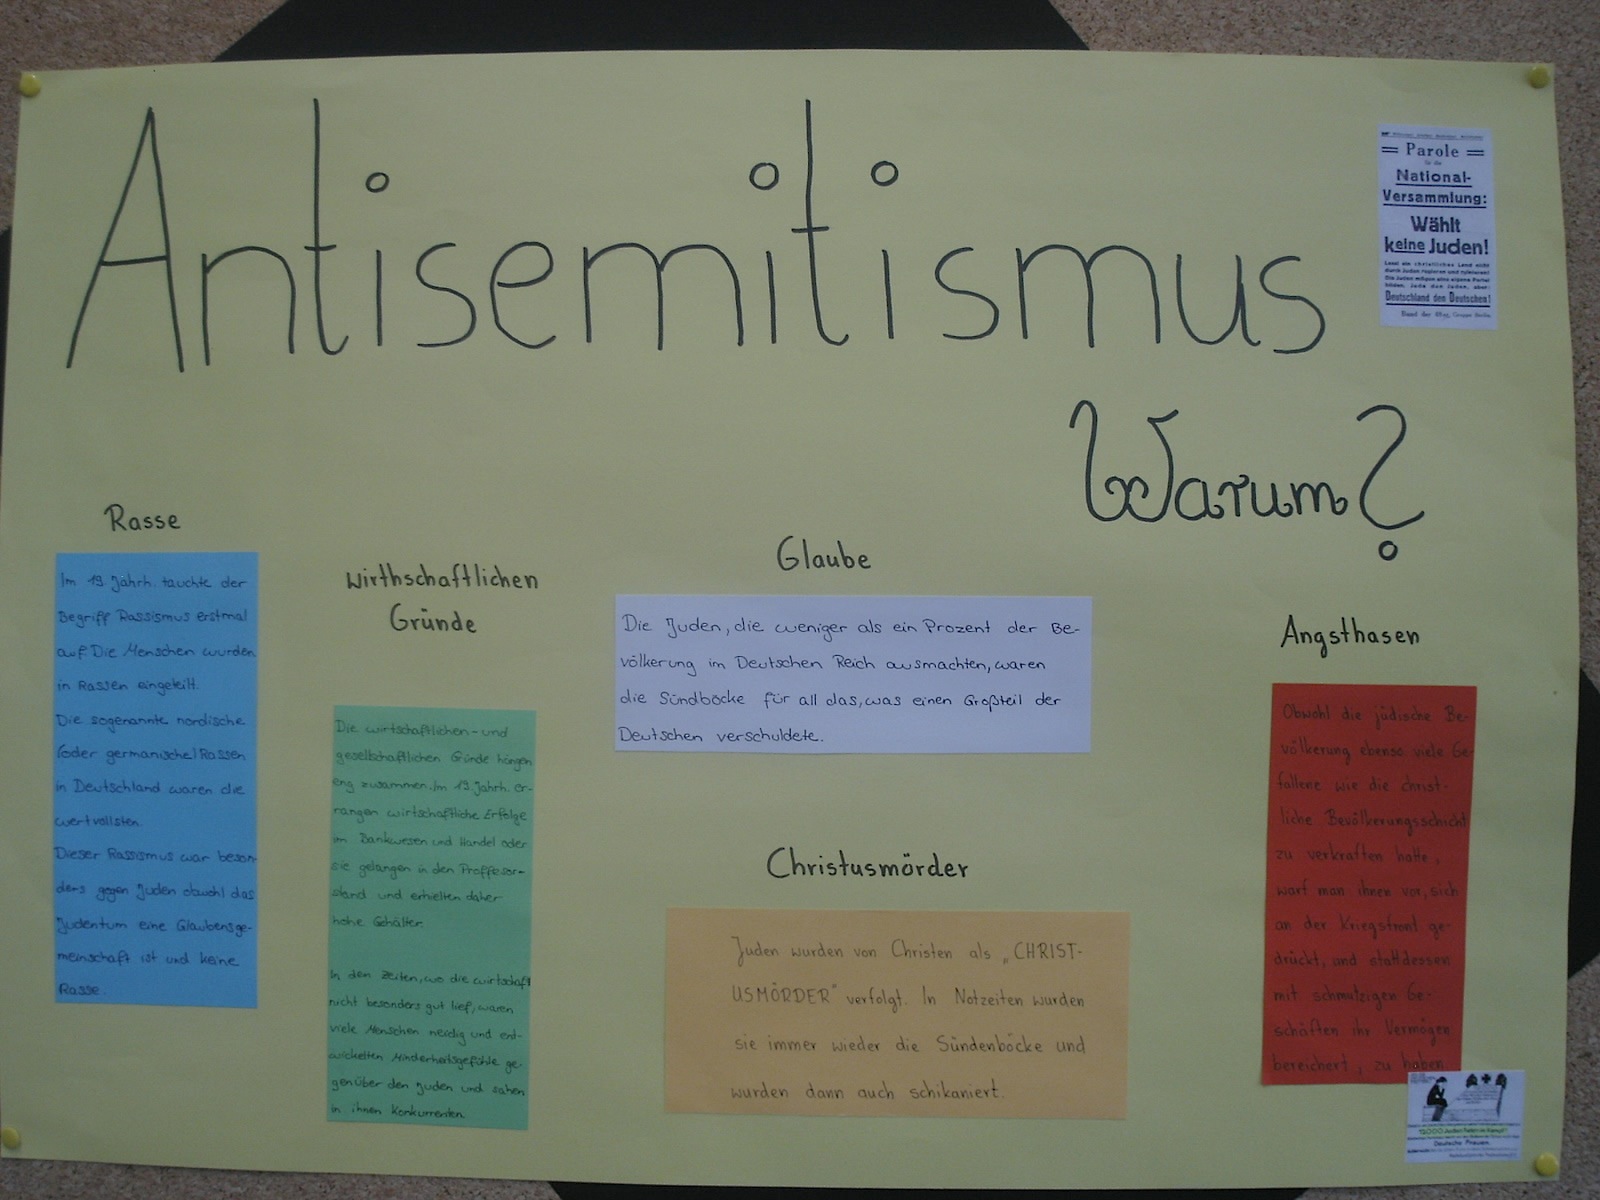 Antisemitismus
Warum?
Parole
für die
National-
Versammlung:
Wählt
keine Juden!
Lasst ein christliches Land nicht
durch Juden regieren und tyrannisieren!
Die Juden mögen eine eigene Partei
bilden. Jude den Juden, aber:
Deutschland den Deutschen!
Rasse
Im 19 Jährh. tauchte der
Begriff Rassismus erstmal
auf. Die Menschen wurden
in Rassen eingeteilt.
Die sogenannte nordische
(oder germanische) Rassen
in Deutschland waren die
wertvollsten.
Dieser Rassismus war beson-
ders gegen Juden obwohl das
Judentum eine Glaubensge-
meinschaft ist und keine
Rasse.
Wirthschaftlichen
Gründe
Die wirtschaftlichen- und
gesellschaftlichen Gründe hängen
eng zusammen. Im 19. Jahrh. er-
rangen wirtschaftliche Erfolge
im Bankwesen und Handel oder
sie gelangen in den Proffesor-
stand und erhielten daher
hohe Gehälter.
In den Zeiten, wo die wirtschaft
nicht besonders gut lief, waren
viele Menschen neidig und ent-
wickelten Minderheitsgefühle ge-
genüber den Juden und sahen
in ihnen Konkurrenten.
Glaube
Die Juden, die weniger als ein Prozent der Be-
völkerung im Deutschen Reich ausmachten, waren
die Sündböcke für all das, was einen Großteil der
Deutschen verschuldete.
Christusmörder
Juden wurden von Christen als „CHRIST-
USMÖRDER" verfolgt. In Notzeiten wurden
sie immer wieder die Sündenböcke und
wurden dann auch schikaniert.
Angsthasen
Obwohl die jüdische Be-
völkerung ebenso viele Ge-
fallene wie die christ-
liche Bevölkerungsschicht
zu verkraften hatte,
warf man ihnen vor, sich
an der Kriegsfront ge-
drückt, und stattdessen
mit schmutzigen Ge-
schäften ihr Vermögen
bereichert, zu haben.
12000 Juden fielen im Kampf!
Deutsche Frauen,